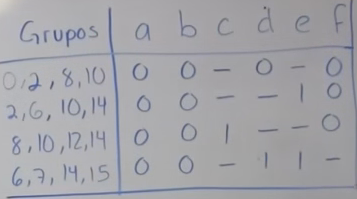 Grupos a b c d e f
0,2,8,10 0 0 - 0 - 0
2,6,10,14 0 0 - - 1 0
8,10,12,14 0 0 1 - - 0
6,7,14,15 0 0 - 1 1 -